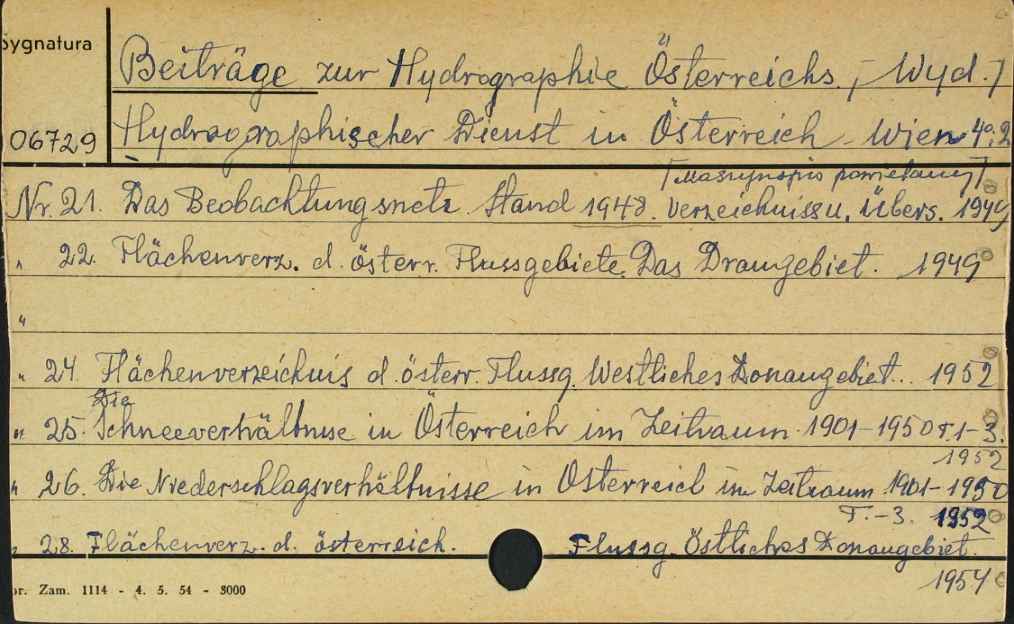 Sygnatura
Beiträge zur Hydrographie Österreichs. / Wyd. /
06729
Hydrographischer Dienst in Österreich - Wien 4º. 2
/ Maszynopis powielany /
Nr. 21. Das Beobachtungsnetz Stand 1948. Verzeichniss u. Übers. 1949
" 22. Flächenverz. d. österr. Flussgebiete. Das Draugebiet. 1949
"
" 24. Flächenverzeichnis d. österr. Flussg. Westliches Donaugebiet... 1952
Die
" 25. Schneeverhältnise in Österreich im Zeitraum 1901-1950 T. 1-3.
1952
" 26. Die Niederschlagsverhältnisse in Österreich im Zeitraum 1901-1950
T. -3. 1952
" 28. Flächenverz. d. österreich. Flussg. Östliches Donaugebiet.
1954
or. Zam. 1114 - 4. 5. 54 - 3000